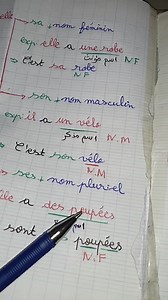 sa + nom féminin
exp: elle a une robe
اسم مؤنث N.F
=> C'est sa robe
N.F
son + nom masculin
exp: il a un vélo
اسم مذكر N.M
=> C'est son vélo
N.M
ses + nom pluriel
elle a des poupées
اسم
sont poupées
N.F